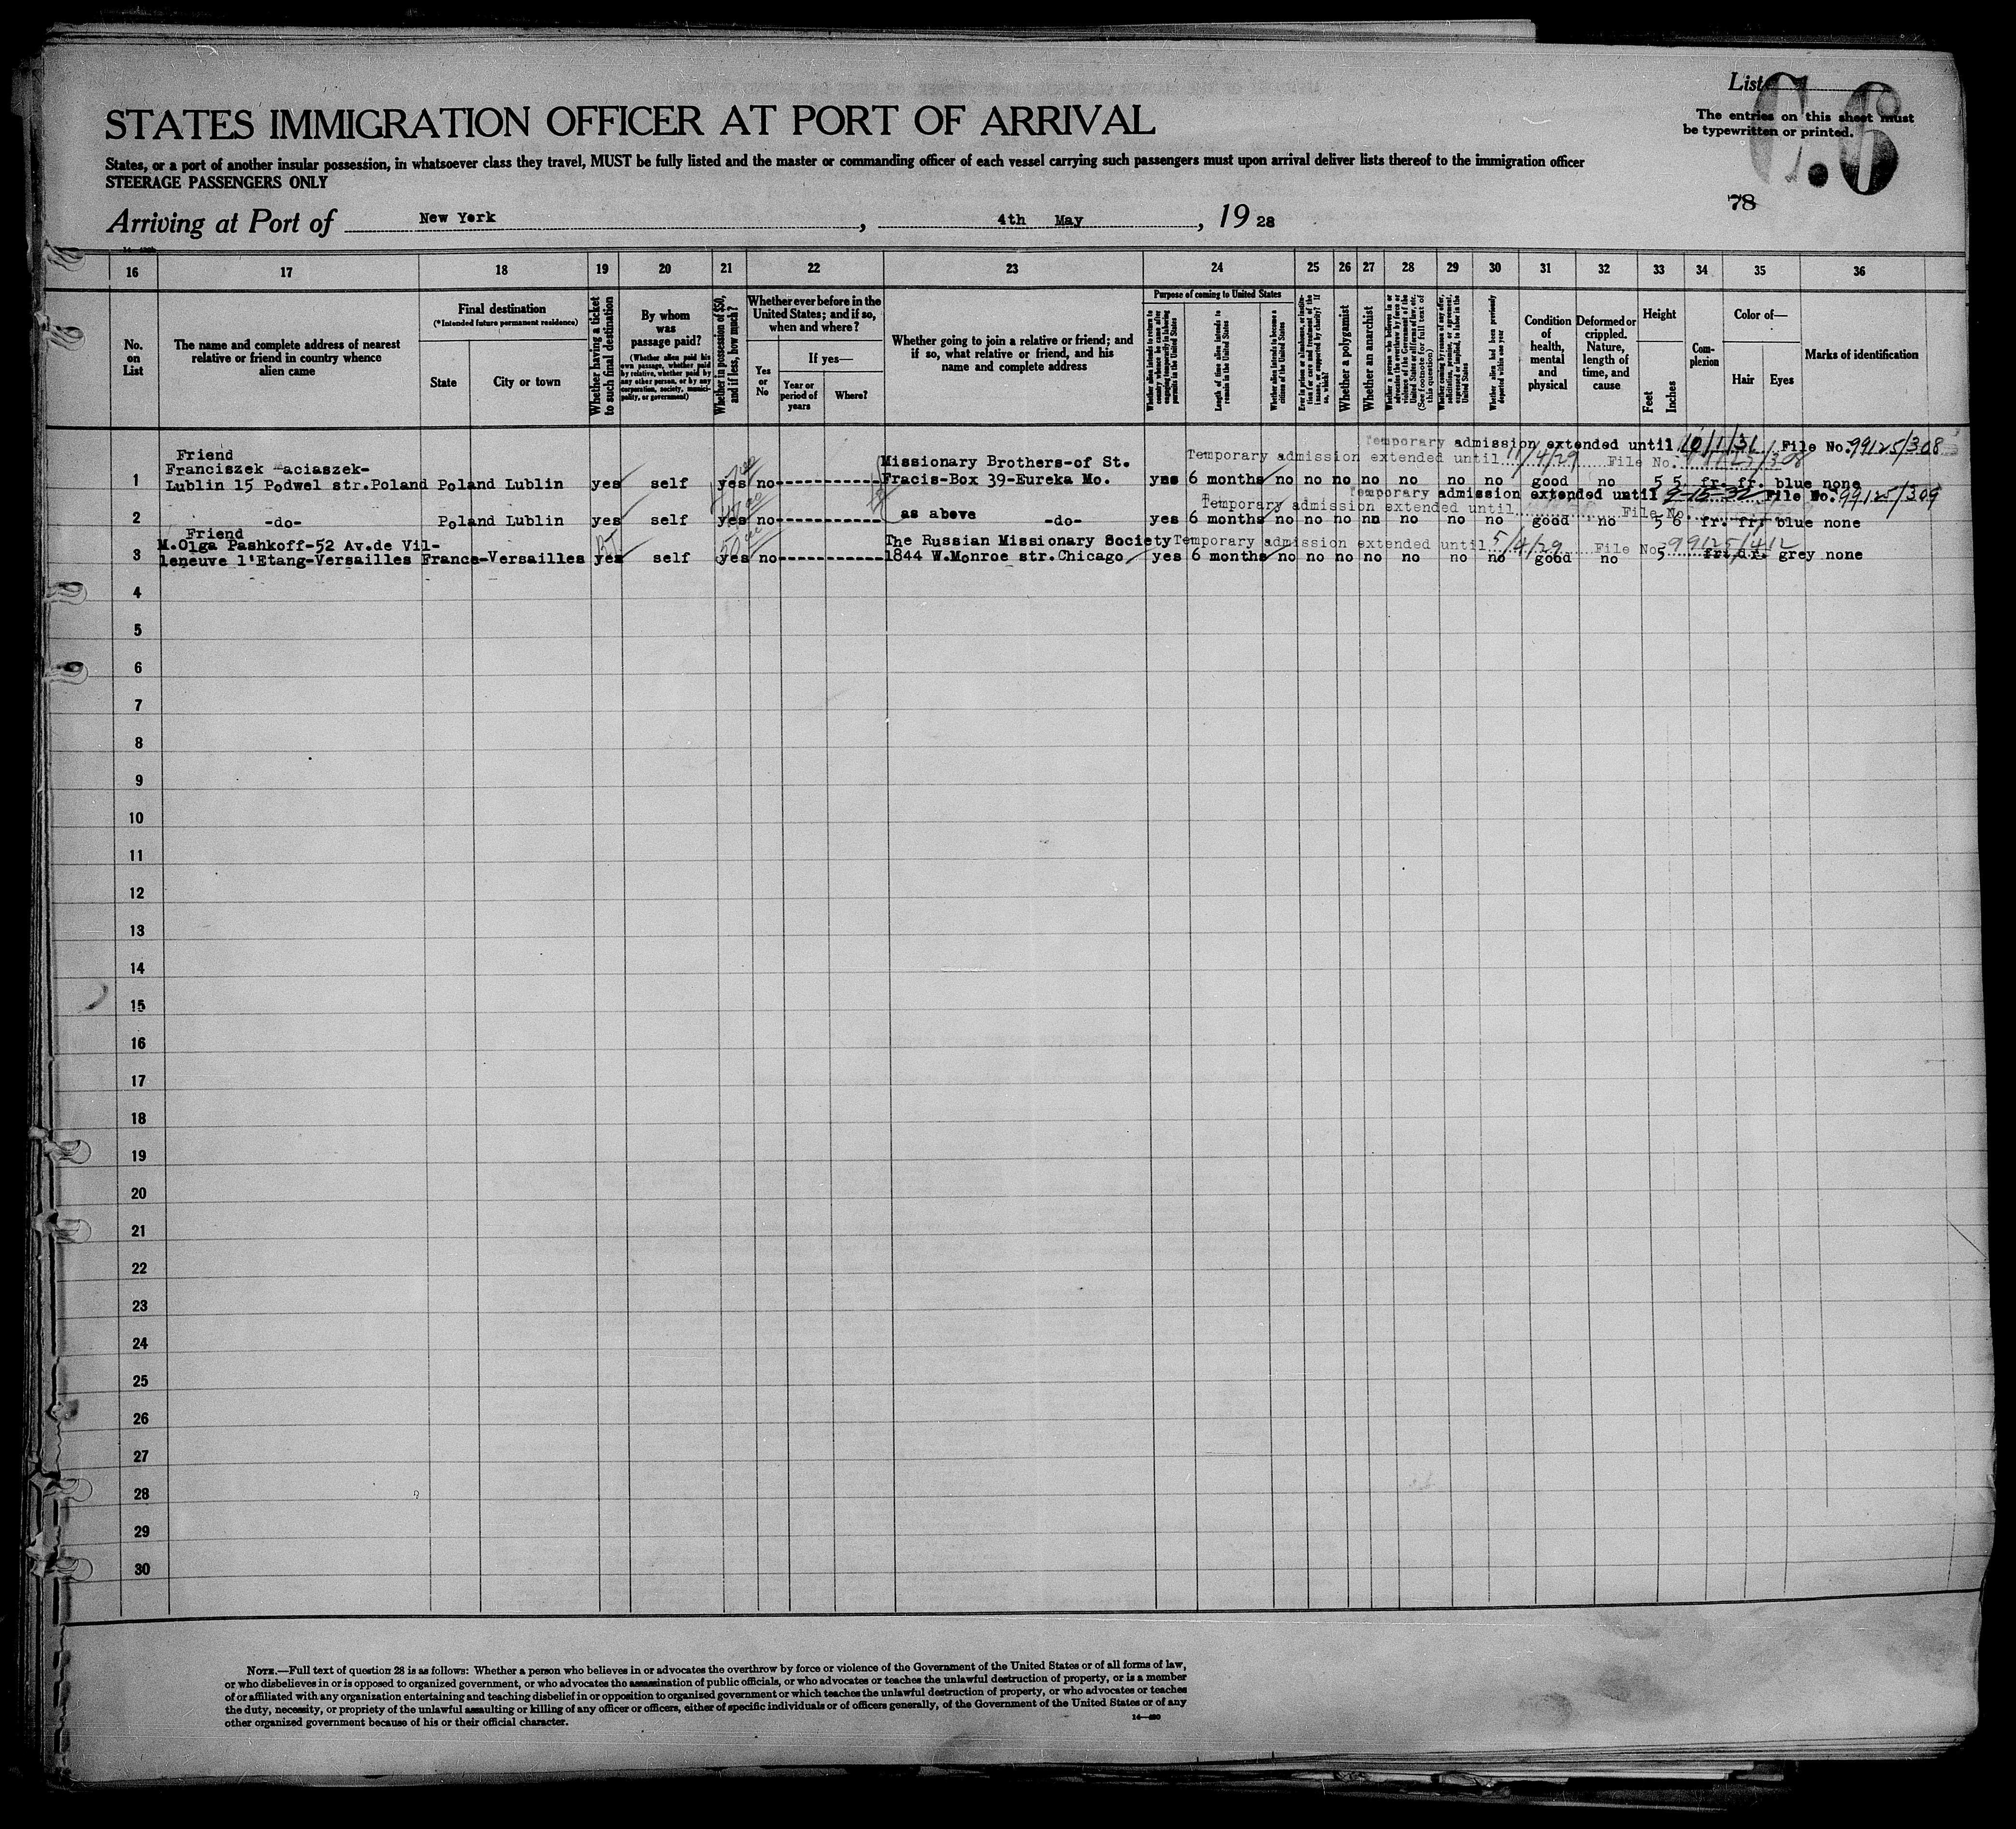 List
C.6
The entries on this sheet must
be typewritten or printed.
STATES IMMIGRATION OFFICER AT PORT OF ARRIVAL
States, or a port of another insular possession, in whatsoever class they travel, MUST be fully listed and the master or commanding officer of each vessel carrying such passengers must upon arrival deliver lists thereof to the immigration officer
STEERAGE PASSENGERS ONLY
78
Arriving at Port of New York, 4th May, 19 28
16 17 18 19 20 21 22 23 24 25 26 27 28 29 30 31 32 33 34 35 36
No. on List
The name and complete address of nearest relative or friend in country whence alien came
Final destination
(*Intended future permanent residence)
State
City or town
Whether having a ticket to such final destination
By whom was passage paid?
(Whether alien paid his own passage, whether paid by relative, whether paid by any other person, or by any corporation, society, municipality, or government)
Whether in possession of $50, and if less, how much?
Whether ever before in the United States; and if so, when and where?
Yes or No
If yes—
Year or period of years
Where?
Whether going to join a relative or friend; and if so, what relative or friend, and his name and complete address
Purpose of coming to United States
Whether alien intends to return to country whence he came after engaging temporarily in laboring pursuits in the United States
Length of time alien intends to remain in the United States
Whether alien intends to become a citizen of the United States
Ever in prison or almshouse, or institution for care and treatment of the insane, or supported by charity? If so, which?
Whether a polygamist
Whether an anarchist
Whether a person who believes in or advocates the overthrow by force or violence of the Government of the United States or all forms of law, etc. (See footnote for full text of this question)
Whether coming by reason of any offer, solicitation, promise, or agreement, expressed or implied, to labor in the United States
Whether alien had been previously deported within one year
Condition of health, mental and physical
Deformed or crippled. Nature, length of time, and cause
Height
Feet
Inches
Complexion
Color of—
Hair
Eyes
Marks of identification
Temporary admission extended until 10/1/31 File No. 99125/308
Friend
Temporary admission extended until 11/4/29 File No.
Franciszek Maciaszek-
Missionary Brothers-of St.
1 Lublin 15 Podwel str.Poland Poland Lublin yes self yes no Fracis-Box 39-Eureka Mo. yes 6 months no no no no no no no good no 5 5 fr. fr. blue none
Temporary admission extended until 9-15-32 File No. 99125/309
Temporary admission extended until File No.
2 -do- Poland Lublin yes self yes no as above -do- yes 6 months no no no no no no no good no 5 6 fr. fr. blue none
Friend
M.Olga Pashkoff-52 Av.de Vil-
The Russian Missionary Society Temporary admission extended until 5/4/29 File No. 99125/412
3 leneuve l'Etang-Versailles France-Versailles yes self yes no 1844 W.Monroe str.Chicago yes 6 months no no no no no no no good no 5 fr. dr. grey none
4
5
6
7
8
9
10
11
12
13
14
15
16
17
18
19
20
21
22
23
24
25
26
27
28
29
30
NOTE.—Full text of question 28 is as follows: Whether a person who believes in or advocates the overthrow by force or violence of the Government of the United States or of all forms of law,
or who disbelieves in or is opposed to organized government, or who advocates the assassination of public officials, or who advocates or teaches the unlawful destruction of property, or is a member
of or affiliated with any organization entertaining and teaching disbelief in or opposition to organized government or which teaches the unlawful destruction of property, or who advocates or teaches
the duty, necessity, or propriety of the unlawful assaulting or killing of any officer or officers, either of specific individuals or of officers generally, of the Government of the United States or of any
other organized government because of his or their official character.
14—430